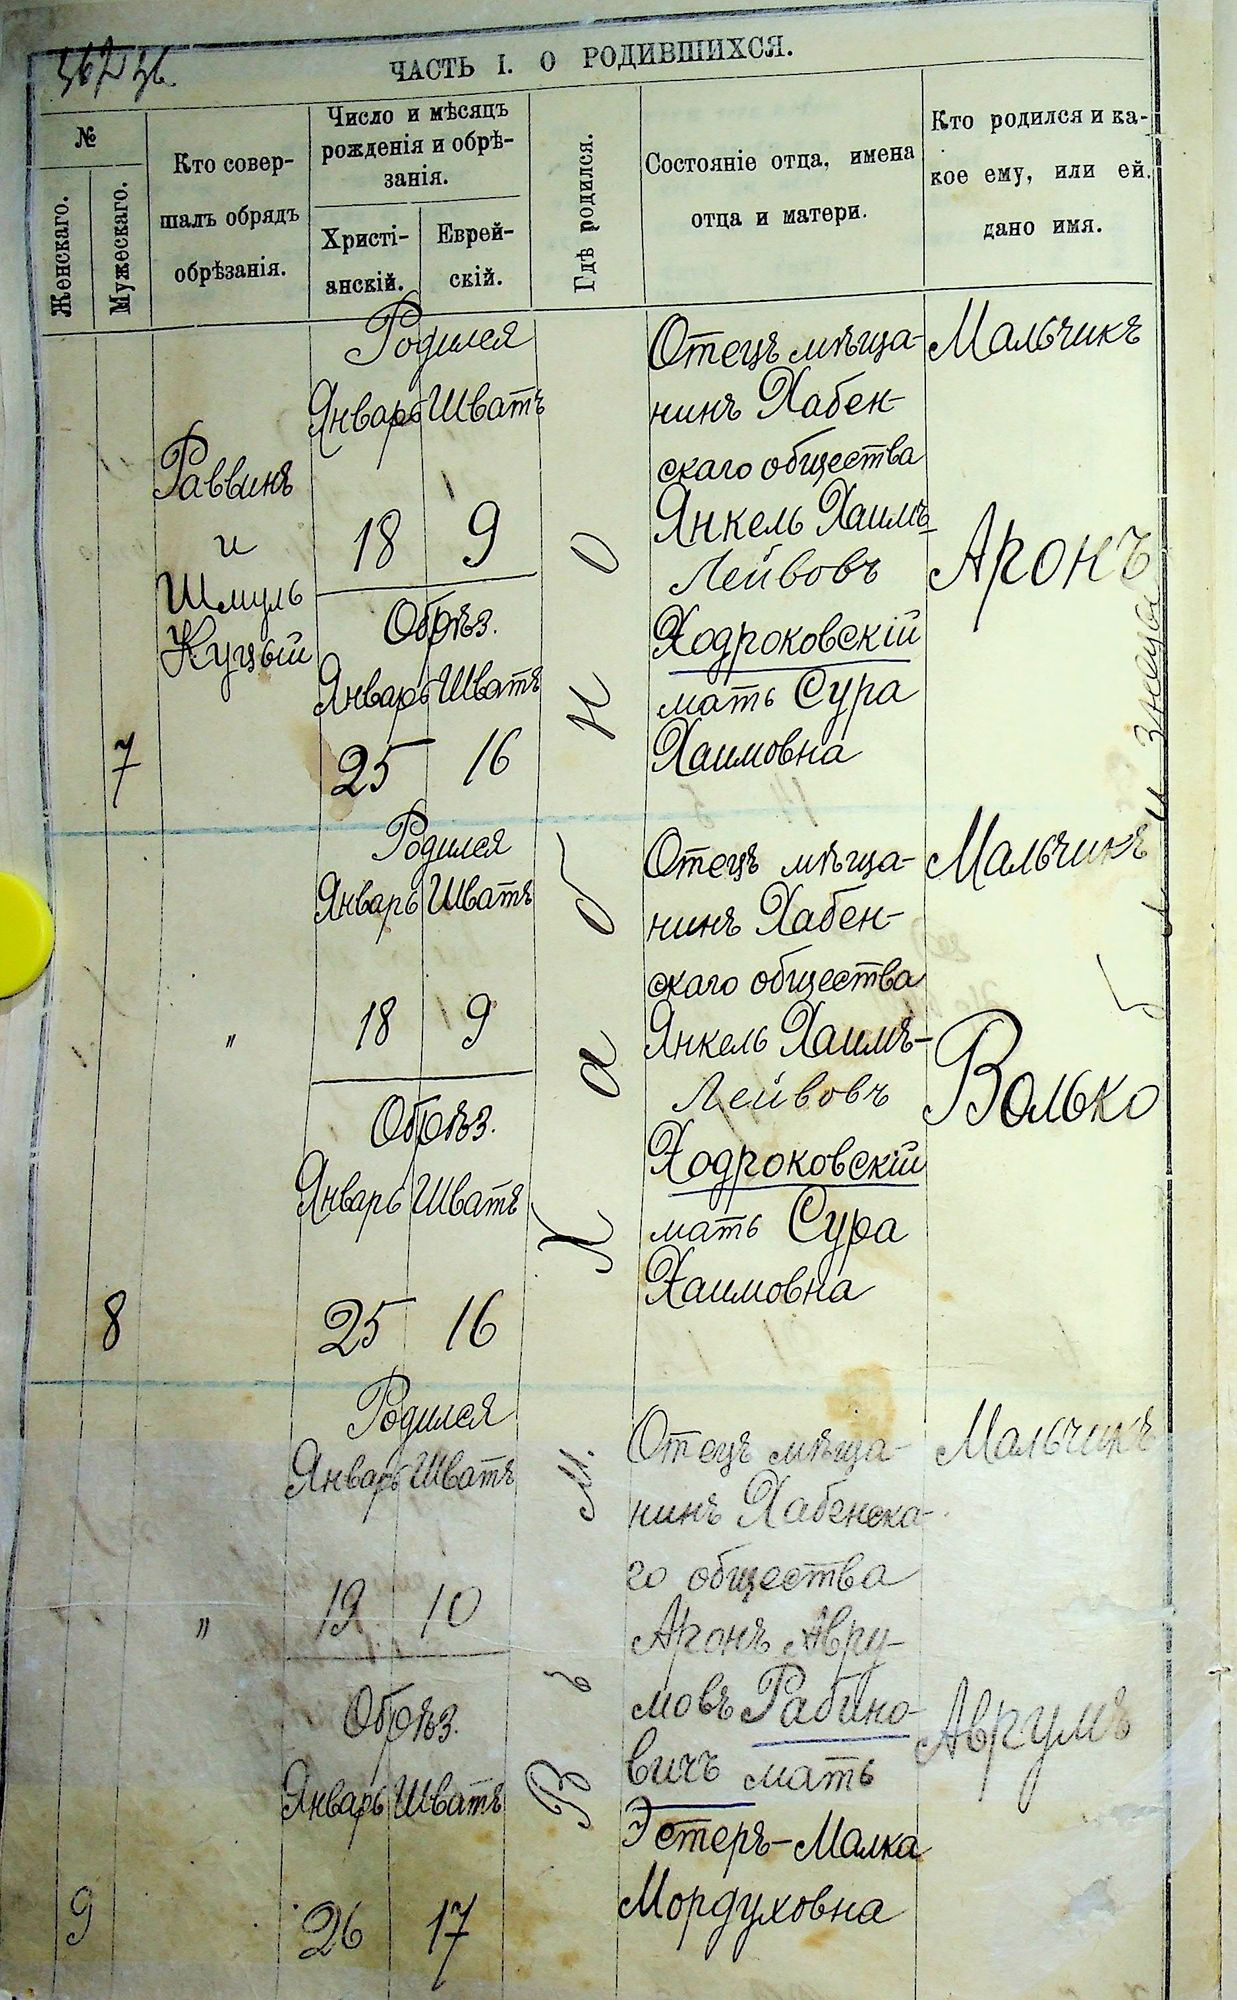 ЧАСТЬ I. О РОДИВШИХСЯ.
№
Женскаго.
Мужескаго.
Кто совер-
шалъ обрядъ
обрѣзанія.
Число и мѣсяцъ
рожденія и обрѣ-
занія.
Христі-
анскій.
Еврей-
скій.
Гдѣ родился.
Состояніе отца, имена
отца и матери.
Кто родился и ка-
кое ему, или ей,
дано имя.
7
Раввинъ
и
Шмуль
Куцый
Родился
Январь Шватъ
18 9
Обрѣз.
Январь Шватъ
25 16
Отецъ мѣща-
нинъ Хабен-
скаго общества
Янкель Хаимъ-
Лейвовъ
Ходроковскій
мать Сура
Хаимовна
Мальчикъ
Аронъ
8
"
Родился
Январь Шватъ
18 9
Обрѣз.
Январь Шватъ
25 16
Отецъ мѣща-
нинъ Хабен-
скаго общества
Янкель Хаимъ-
Лейвовъ
Ходроковскій
мать Сура
Хаимовна
Мальчикъ
Волько
9
"
Родился
Январь Шватъ
19 10
Обрѣз.
Январь Шватъ
26 17
Въ м. Хабно
Отецъ мѣща-
нинъ Хабенска-
го общества
Аронъ Авру-
мовъ Рабино-
вичъ мать
Эстеръ-Малка
Мордуховна
Мальчикъ
Аврумъ